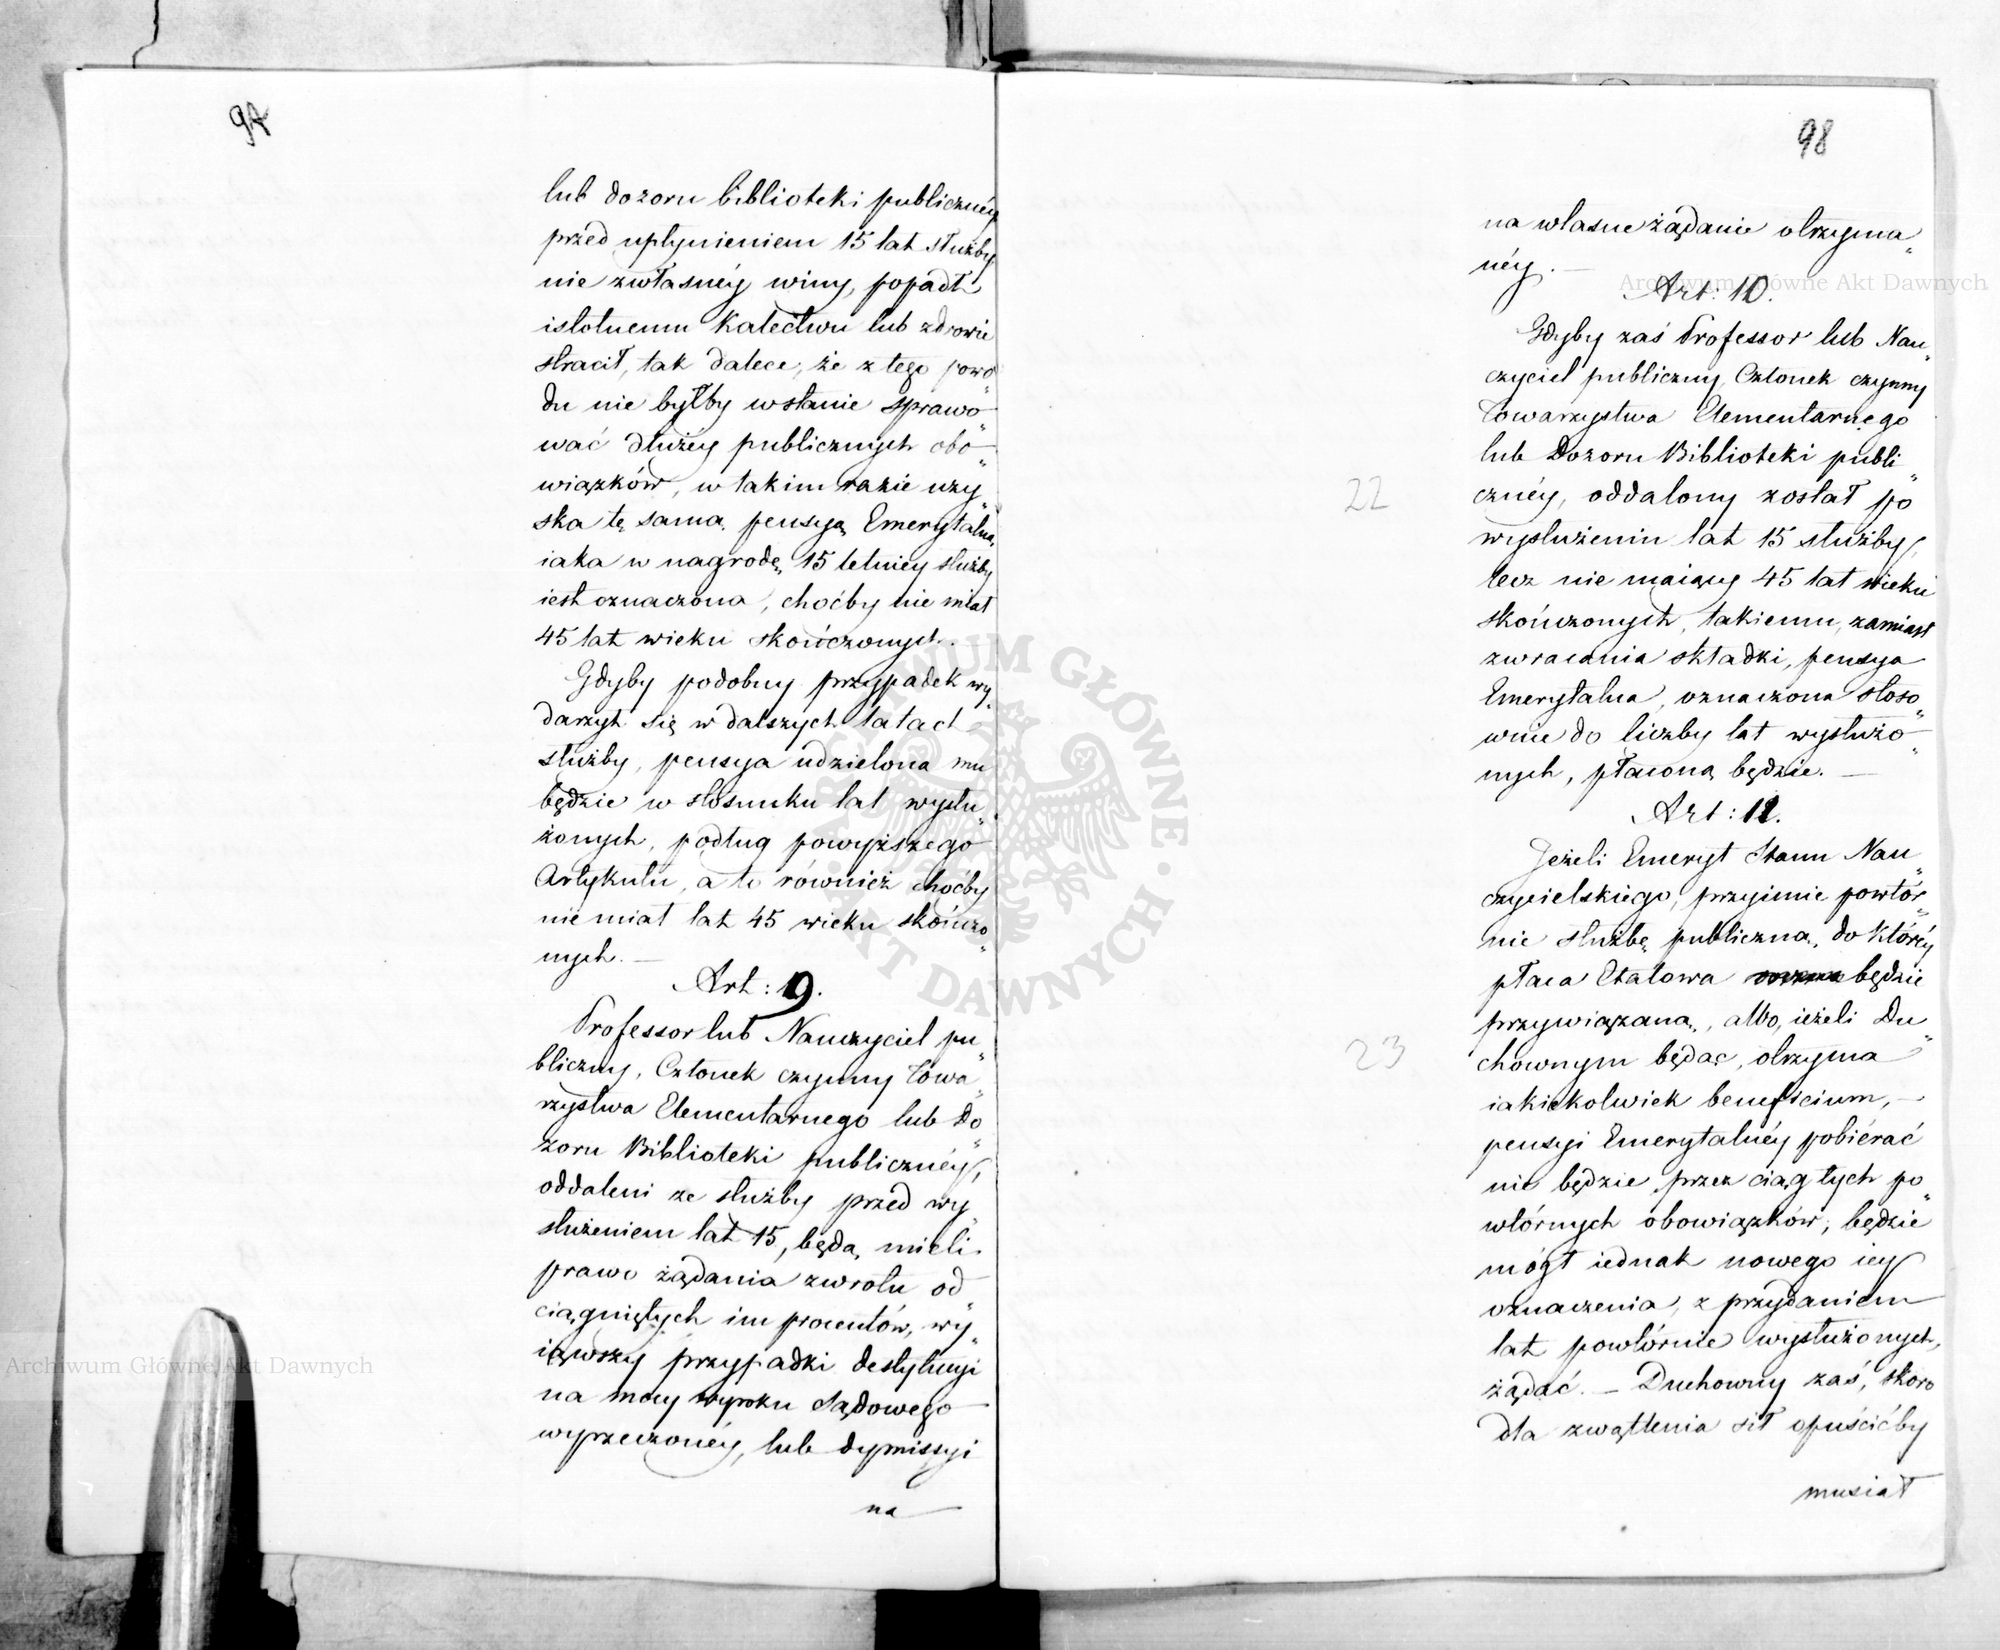 97
lub dozoru biblioteki publicznéy
przed upłynieniem 15 lat służby
nie zwłasnéy winy, popadł
istotnemu Kalectwu lub zdrowie
stracił, tak dalece, że z tego powo„
du nie byłby wstanie sprawo„
wać dłużey publicznych obo„
wiązków, w takim razie uzy„
ska tę samą pensyą Emerytalną,
iaka w nagrodę 15 letniey służby
iest oznaczona, choćby nie miał
45 lat wieku skończonych.
Gdyby podobny przypadek wy„
darzył się w dalszych latach
służby, pensya udzielona mu
będzie w stosunku lat wysłu„
żonych, podług powyższego
Artykułu, a to również choćby
nie miał lat 45 wieku skończo„
nych. —
Art: 9.
Professor lub Nauczyciel pu„
bliczny, Członek czynny Towa„
rzystwa Elementarnego lub Do„
zoru Biblioteki publicznéy,
oddaleni ze służby przed wy„
służeniem lat 15, będą mieli
prawo żądania zwrotu od„
ciągniętych im procentów, wy„
iąwszy przypadki destytucyi
na mocy wyroku Sądowego
wyrzeczonéy, lub dymissyi
na —
98
na własne żądanie otrzyma„
néy. —
Art: 10.
Gdyby zaś Professor lub Nau„
czyciel publiczny, Członek czynny
Towarzystwa Elementarnego
lub Dozoru Biblioteki publi„
cznéy, oddalony został po
22
wysłużeniu lat 15 służby,
lecz nie maiący 45 lat wieku
skończonych, takiemu, zamiast
zwracania składki, pensya
Emerytalna, oznaczona stoso„
wnie do liczby lat wysłużo„
nych, płaconą będzie. —
Art: 11.
Jeżeli Emeryt Stanu Nau„
czycielskiego, przyimie powtór„
nie służbę publiczną, do któréy
płaca Etatowa będzie
przywiązaną, albo, ieżeli Du„
23
chownym będąc, otrzyma
iakiekolwiek beneficium, —
pensyi Emerytalnéy pobiérać
nie będzie przez ciąg tych po„
wtórnych obowiązków, będzie
mógł iednak nowego iey
oznaczenia, z przydaniem
lat powtórnie wysłużonych,
żądać. — Duchowny zaś, skoro
dla zwątlenia sił opuścićby
musiał
Archiwum Główne Akt Dawnych
Archiwum Główne Akt Dawnych
ARCHIWUM GŁÓWNE · AKT DAWNYCH ·